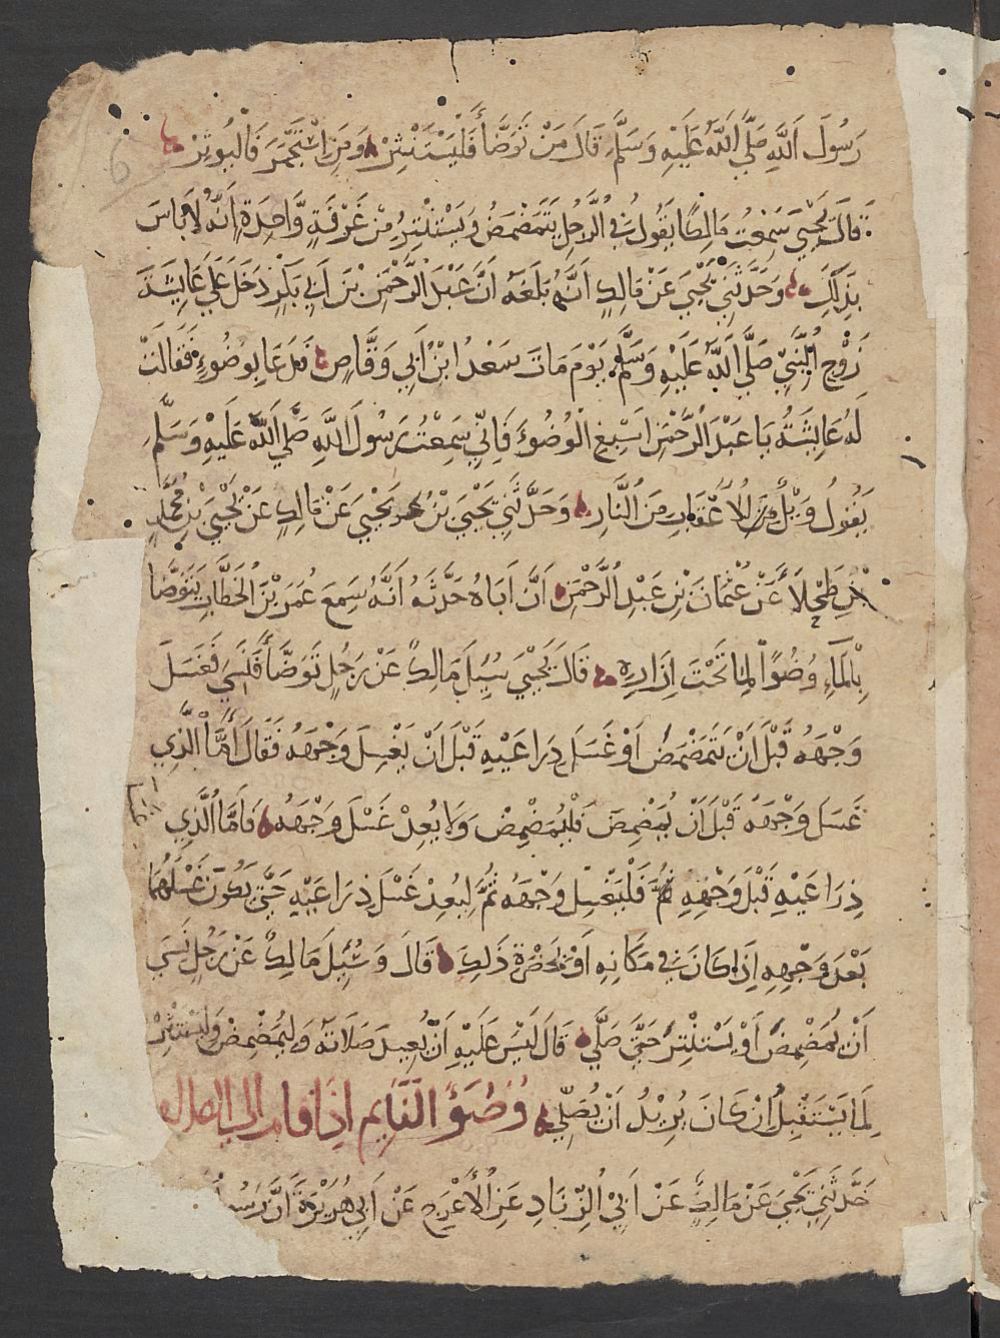 رَسُولَ اَللَّهِ صَلَّي اَللَّهُ عَلَيْهِ وَسَلَّمِ قَالَ مَنْ تَوَضَّأَ فَلْيَسْتَنْثِرْ وَمَنِ اسْتَجْمَرَ فَالْيُوتِرْ
قَالَ يَحْيَي سَمِعْتُ مَالِكًا يَقُولُ في اُلرَّجُلِ يَتَمَضْمَضُ وَيَسْتَنْثِرُ مِنْ غَرْفَةٍ وَّاحِدَةٍ اَنَّهُ لَابَاسَ
بِذَلِكَ وَحَدَّثَنِي يَحْيَي عَنْ مَالِكٍ اَنَّهُ بَلَغَهُ اَنَّ عَبْدَ اَلرَّحْمَنِ بْنَ اَبِي بَكْرٍ دَخَلَ عَلَي عَائِشَةَ
زَوْجِ اِلنَّبِيِّ صَلَّي اَللَّهُ عَلَيْهِ وَسَلَّم يَوْمَ مَاتَ سَعْدُ ابْنُ أَبِي وَقَّاصٍ فَدَعَا بِوَضُوءٍ فَقَالَتْ
لَهُ عَائِشَةُ يَا عَبْدَ اَلرَّحْمَنِ اَسْبِغِ الْوُضُوءَ فَاِنِّي سَمِعْتُ رَسُولَ اَللَّهِ صَلَّي اَللَّهُ عَلَيْهِ وَسَلَّمِ
يَقُولُ وَيْلٌ مِنَ لِلْاَعْقَابِ مِنَ اَلنَّارِ وَحَدَّثَنِي يَحْيَي عَنْ مَالِكٍ عَنْ يَحْيَي بْنِ مُحَمَّدِ
بْنِ طَحْلَاَ عَنْ عُثْمَانَ بْنِ عَبْدِ اُلرَّحْمَنِ اَنَّ اَبَاهُ حَدَّثَهُ اَنَّهُ سَمِعَ عُمَرَ بْنَ اَلخَطَّابِ يَتَوَضَّأ
بِالْمَاءِ وُضُوًا لِمَا تَحْتَ اِزَارِهِ قَالَ يَحْيَي سُيِلَ مَالِكٌ عَنْ رَجُلٍ تَوَضَّأَ فَنَسِيَ فَغَسَلَ
وَجْهَهُ قَبْلَ اَنْ يَتَمَضْمَضَ اَوْ غَسَلَ ذِرَاعَيْهِ قَبْلَ اَنْ يَغْسِلَ وَجْهَهُ فَقَالَ أَمَّا اَلَّذِي
غَسَلَ وَجْهَهُ قَبْلَ اَنْ يُمَضْمِضَ فَلْيُمَضْمِضْ وَلَا يُعِدْ غَسْلَ وَجْهِهِ وَاَمَّا اَلَّذِي
ذِرَاعَيْهِ قَبْلَ وَجْهِهِ ثُمَّ فَلْيَغْسِلْ وَجْهَهُ ثُمَّ لِيُعِدْ غَسْلَ ذِرَاعَيْهِ حَتَّي يَكُونَ غَسْلُهُمَا
بَعْدَ وَجْهِهِ اِذَا كَانَ فِي مَكَانِهِ اَوْ بِحَضْرَةِ ذَلِكَ قَالَ وَسُئِلَ مَالِكٌ عَنْ رَجُلٍ نَسِيَ
اَنْ يُمَضْمِضَ أَوْ يَسْتَنْثِرَ حَتَّي صَلَّي قَالَ لَيْسَ عَلَيْهِ اَنْ يُعِيدَ صَلَاتَهُ وَلِيُمَضْمِضْ وَلْيَسْتَنْثِرْ
لِمَا يَسْتَقْبِلُ اِنْ كَانَ يُرِيْدُ اَنْ يُصَلِّيَ وُضُوُّ الْنَّايِمِ اِذَا قام الي الصلاة
حَدَّثَنِي يَحْيَي عَنْ مَالِكٍ عَنْ اَبِي اِلزِّنَادِ عَنِ اُلْأَعْرَجِ عَنْ اَبِي هُرَيْرَةَ اَنَّ رَسُولَ